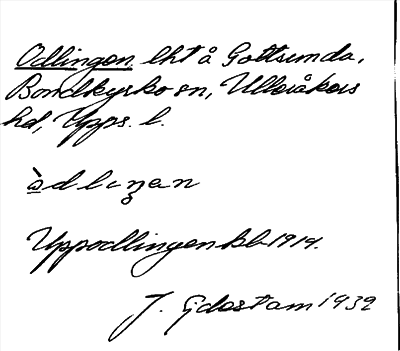 Odlingen lht å Gottsunda,
Bondkyrko sn, Ulleråkers
hd, Upps. l.
ò̱dlıŋən
Uppodlingen kb 1919.
J. Götlstam 1932